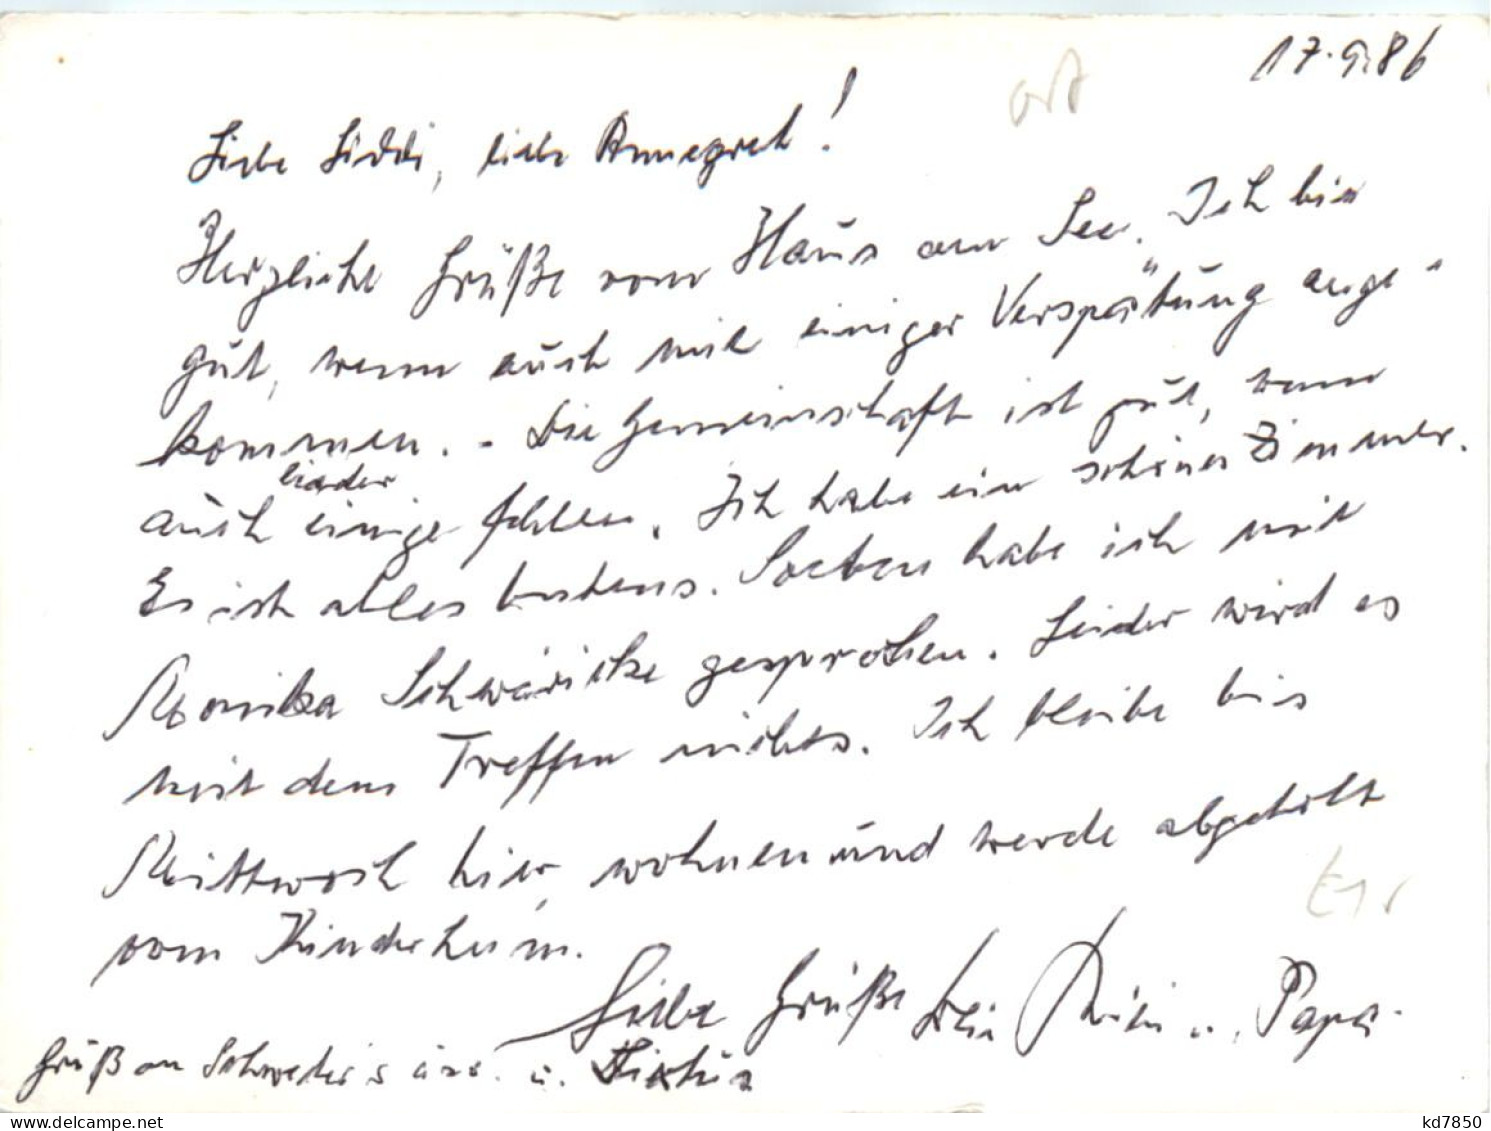 17.9.86
Liebe Siddi, liebe Annegret!
Herzliche Grüße vom Haus am See. Ich bin
gut, wenn auch mit einiger Verspätung ange-
kommen. - Die Gemeinschaft ist gut, wenn
auch leider einige fehlen. Ich habe ein schönes Zimmer.
Es ist alles bestens. Soeben habe ich mit
Monika Schwäricke gesprochen. Leider wird es
mit dem Treffen nichts. Ich bleibe bis
Mittwoch hier wohnen und werde abgeholt
vom Kinderheim.
Liebe Grüße Dein u. Papa.
Gruß an u.
kd7850